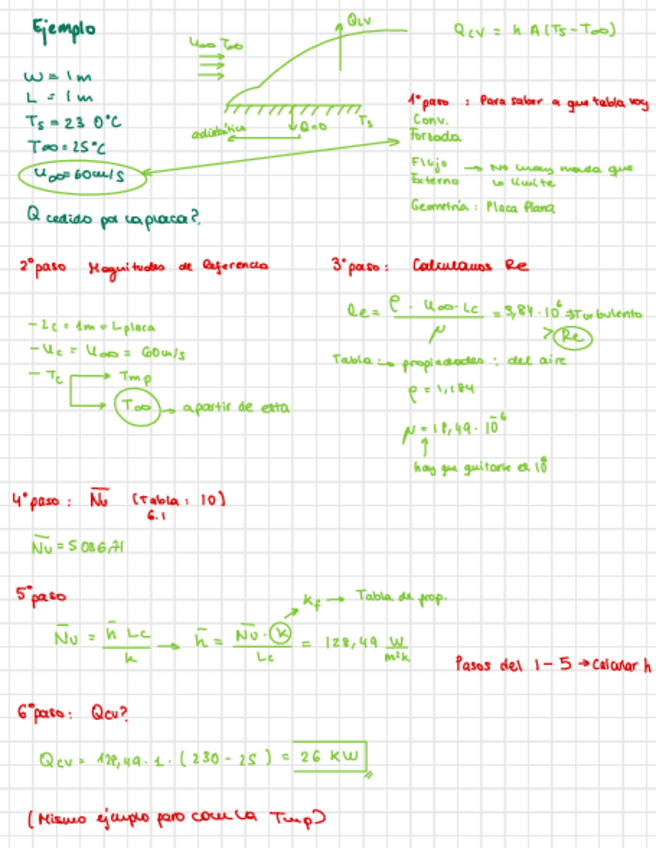 Ejemplo
Qcv
U∞ T∞
Qcv = h A (Ts - T∞)
W = 1 m
L = 1 m
Ts = 23 0°C
T∞ = 25°C
U∞ = 60 m/s
adiabática
Q=0
Ts
Q cedido por la placa?
1º paso : Para saber a que tabla voy
Conv.
Forzada
Flujo Externo → No hay nada que lo limite
Geometría : Placa Plana
2º paso Magnitudes de Referencia
- Lc = 1m = L placa
- Uc = U∞ = 60 m/s
- Tc → Tmp
T∞ → a partir de esta
3º paso : Calculamos Re
Re = ρ · U∞ · Lc / μ = 3,84 · 10^6 → Turbulento
> Re
Tabla → propiedades : del aire
ρ = 1,184
μ = 18,49 · 10^-6
hay que quitarle el 10^6
4º paso : Nu (Tabla : 10)
6.1
Nu = 5036,71
5º paso
Nu = h Lc / k → h = Nu · k / Lc = 128,49 W/m²K
kf → Tabla de prop.
Pasos del 1 - 5 → Calcular h
6º paso : Qcv?
Qcv = 128,49 · 1 · (230 - 25) = 26 KW
(Mismo ejemplo pero con la Tmp)